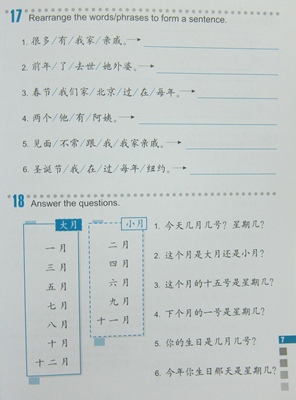 17 Rearrange the words/phrases to form a sentence.
1. 很多/有/我家/亲戚。
2. 前年/了/去世/她外婆。
3. 春节/我们家/北京/过/在/每年。
4. 两个/他/有/阿姨。
5. 见面/不常/跟/我/我家亲戚。
6. 圣诞节/我/在/过/每年/纽约。
18 Answer the questions.
大月
一月
三月
五月
七月
八月
十月
十二月
小月
二月
四月
六月
九月
十一月
1. 今天几月几号？星期几？
2. 这个月是大月还是小月？
3. 这个月的十五号是星期几？
4. 下个月的一号是星期几？
5. 你的生日是几月几号？
6. 今年你生日那天是星期几？
7